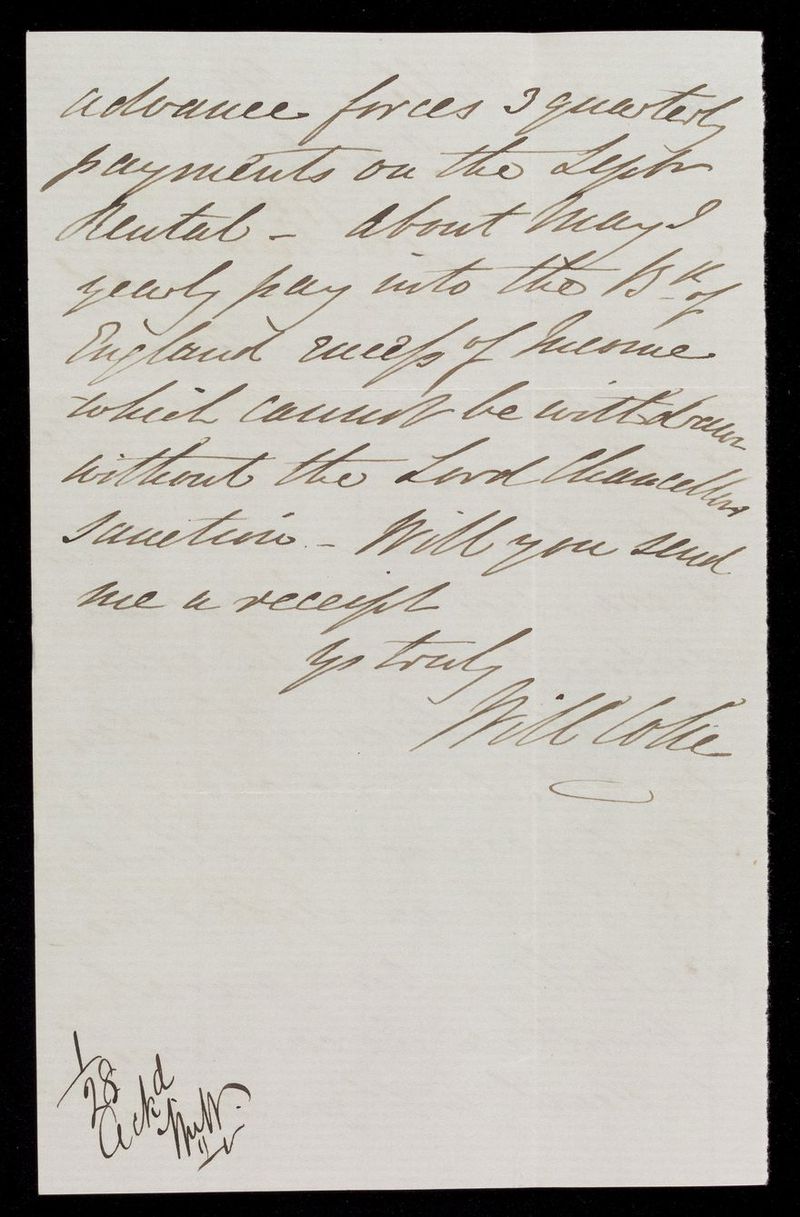 advance forces 3 quarterly
payments on the Septr
Rental – About May I
yearly pay into the Bk of
England excess of Income
which cannot be withdrawn
without the Lord Chancellors
sanction – Will you send
me a receipt
Ys truly
Will Coke
1/28
Ackd